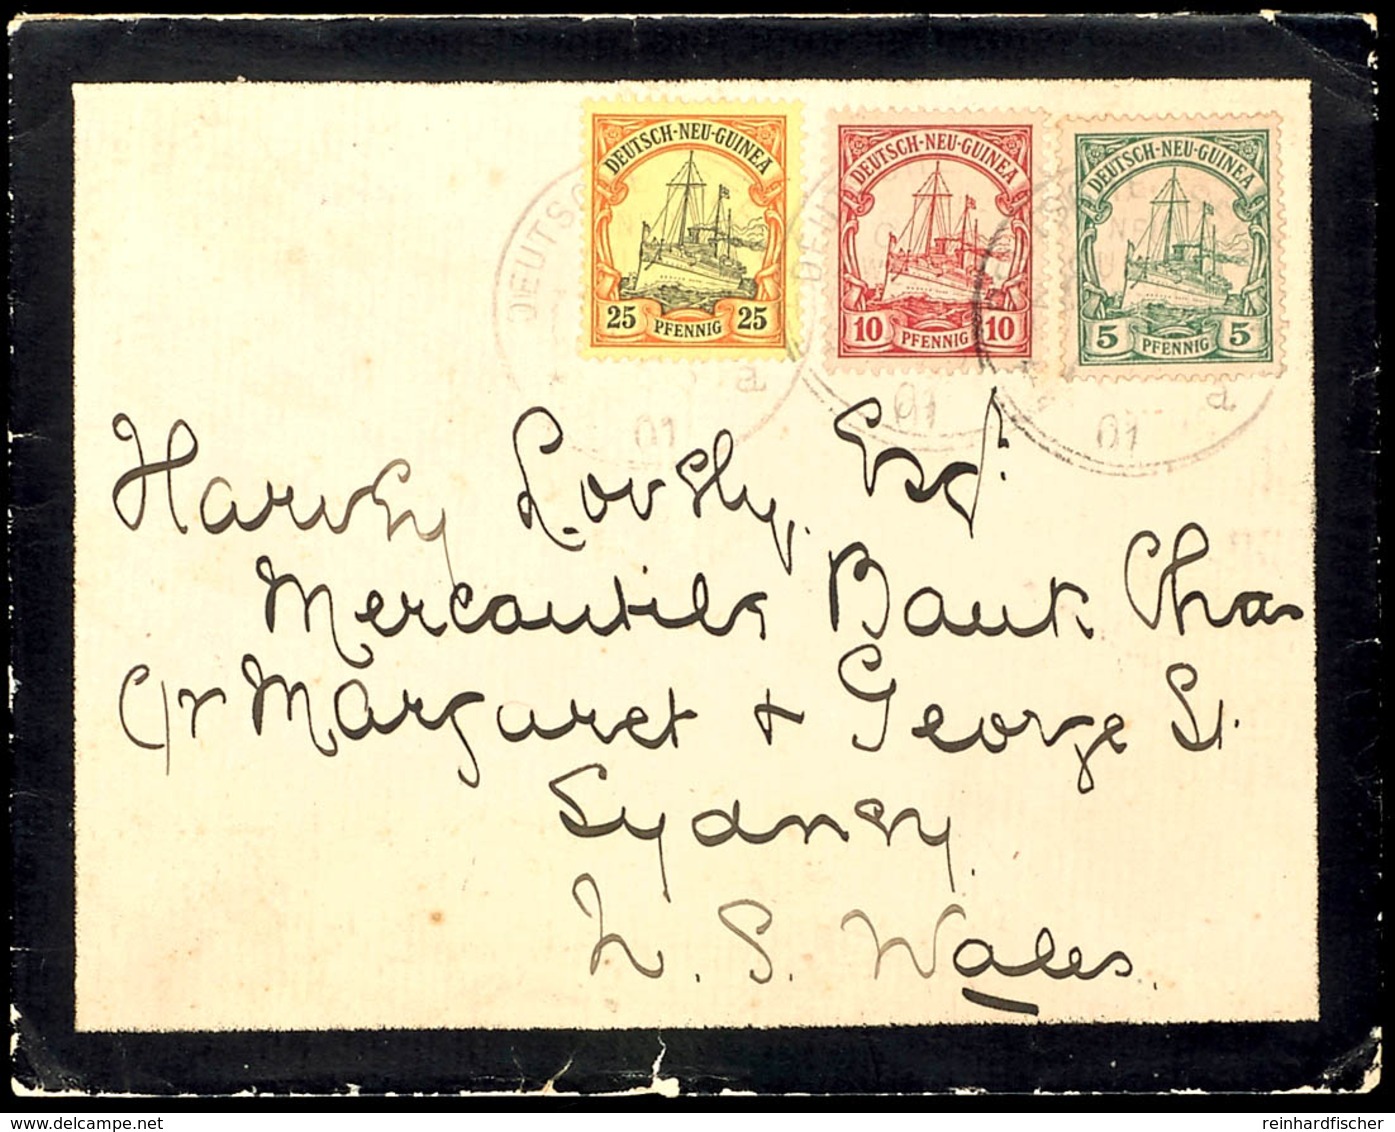 DEUTSCH-NEU-GUINEA
25 PFENNIG 25
DEUTSCH-NEU-GUINEA
10 PFENNIG 10
DEUTSCH-NEU-GUINEA
5 PFENNIG 5
DEUTSC
a
01
DEU
01
a
01
Harvey Lovely, Esq.
Mercantile Bank Cha
C/r Margaret + George St.
Sydney.
N. S. Wales.
www.delcampe.net
reinhardfischer